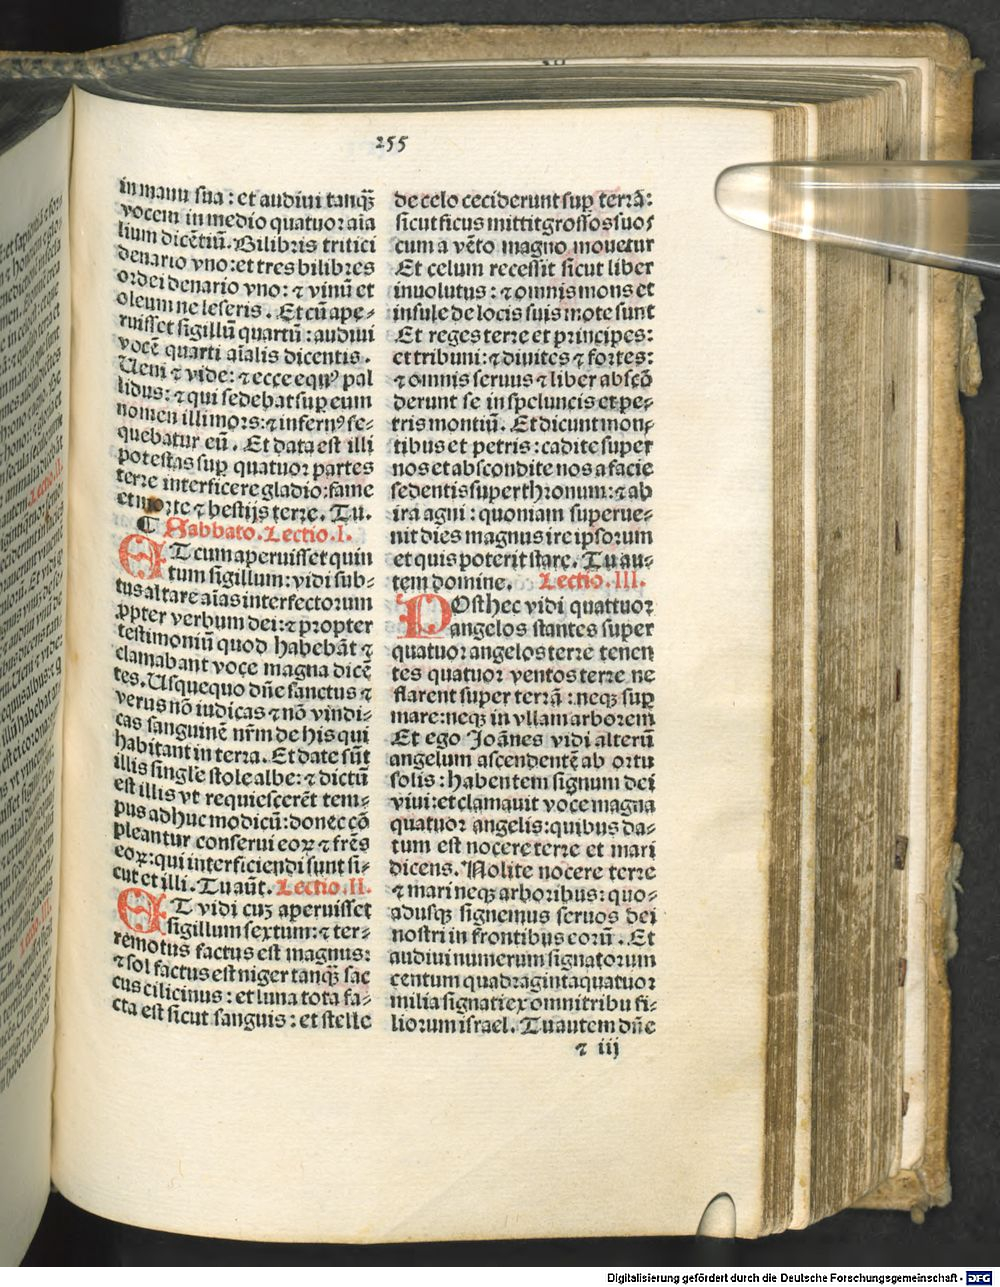 255
in manu sua : et audiui tanqȝ̄
vocem in medio quatuor aia
lium dicētiū. Bilibris tritici
denario vno: et tres bilibres
ordei denario vno: ⁊ vinū et
oleum ne leseris . Et cū ape⸗
ruisset sigillū quartū : audiui
vocē quarti aīalis dicentis .
Ueni ⁊ vide: ⁊ ecce equꝰ pal
lidus: ⁊ qui sedebat sup̄ eum
nomen illi mors: ⁊ infernꝰ se⸗
quebatur eū . Et data est illi
potestas sup̄ quatuor partes
terre interficere gladio: fame
et morte ⁊ bestijs terre. Tu.
¶ Sabbato. Lectio. I.
ET cum aperuisset quin
tum sigillum: vidi sub⸗
tus altare aīas interfectorum
ꝓpter verbum dei: ⁊ propter
testimoniū quod habebāt ⁊
clamabant voce magna dicē
tes. Usquequo dn̄e sanctus ⁊
verus nō iudicas ⁊ nō vindi⸗
cas sanguinē nr̄m de his qui
habitant in terra. Et date sūt
illis singl̄e stole albe: ⁊ dictū
est illis vt requiescerēt tem⸗
pus adhuc modicū: donec cō
pleantur conserui eoꝝ ⁊ fr̄es
eoꝝ: qui interficiendi sunt si⸗
cut et illi. Tu aūt. Lectio. II.
ET vidi cuȝ aperuisset
sigillum sextum: ⁊ ter⸗
remotus factus est magnus:
⁊ sol factus est niger tanqȝ̄ sac
cus cilicinus : et luna tota fa⸗
cta est sicut sanguis : et stelle
de celo ceciderunt sup̄ terrā:
sicut ficus mittit grossos suos
cum a vēto magno mouetur
Et celum recessit sicut liber
inuolutus : ⁊ omnis mons et
insule de locis suis mote sunt
Et reges terre et principes:
et tribuni: ⁊ diuites ⁊ fortes:
⁊ omnis seruus ⁊ liber abscō
derunt se in speluncis et pe⸗
tris montiū. Et dicunt mon⸗
tibus et petris : cadite super
nos et abscondite nos a facie
sedentis super thronum: ⁊ ab
ira agni : quoniam superue⸗
nit dies magnus ire ipsorum
et quis poterit stare. Tu au⸗
tem domine. Lectio. III.
POst hec vidi quattuor
angelos stantes super
quatuor angelos terre tenen
tes quatuor ventos terre ne
flarent super terrā : neqȝ sup̄
mare: neqȝ in vllam arborem
Et ego Joānes vidi alterū
angelum ascendentē ab ortu
solis : habentem signum dei
viui: et clamauit voce magna
quatuor angelis: quibus da⸗
tum est nocere terre et mari
dicens. Nolite nocere terre
⁊ mari neqȝ arboribus: quo⸗
adusqȝ signemus seruos dei
nostri in frontibus eorū . Et
audiui numerum signatorum
centum quadraginta quatuor
milia signati ex omni tribu fi⸗
liorum israel. Tu autem dn̄e
⁊ iij
Digitalisierung gefördert durch die Deutsche Forschungsgemeinschaft - DFG